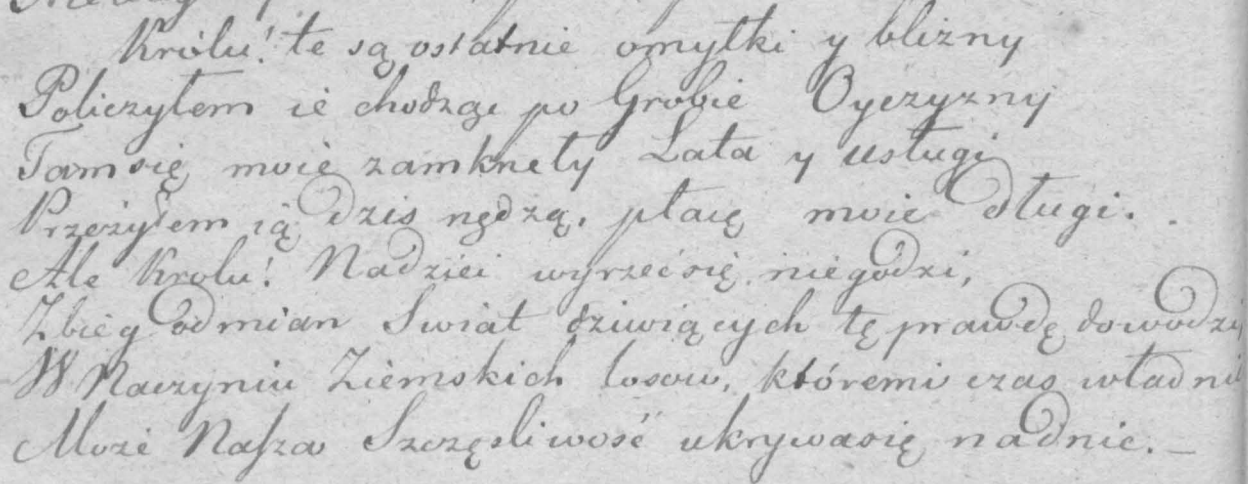 Królu! te są ostatnie omyłki y blizny
Policzyłem ie chodząc po Grobie Oyczyzny
Tam się moie zamknęły Lata y usługi
Przeżyłem ią dzis nędzą, płacę moie długi.
Ale Krolu! Nadziei wyrzec się niegodzi,
Zbieg odmian Swiat dziwiących tę prawdę dowodzi
W Naczyniu Ziemskich losow, któremi czas władnie
Może Nasza Szczęsliwość ukrywa się nadnie. _